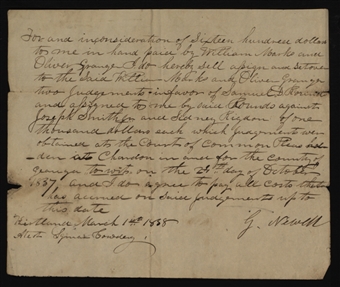 For and in consideration of Sixteen hundred dollars
to me in hand paid by William Marks and
Oliver Granger I do hereby sell assign and set over
to the said William Marks and Oliver Granger
two Judgments in favor of Samuel D Rounds
and assigned to me by said Rounds against
Joseph Smith Jr and Sidney Rigdon of one
thousand dollars each which Judgments were
obtained at the Court of Common Pleas hol-
den at Chardon in and for the county of
Geauga to wit on the 24th day of October
1837, and I do agree to pay all costs that
has accrued on said Judgments up to
this date
Kirtland March 1st 1838
G. Newell
Attest Lyman Cowdery